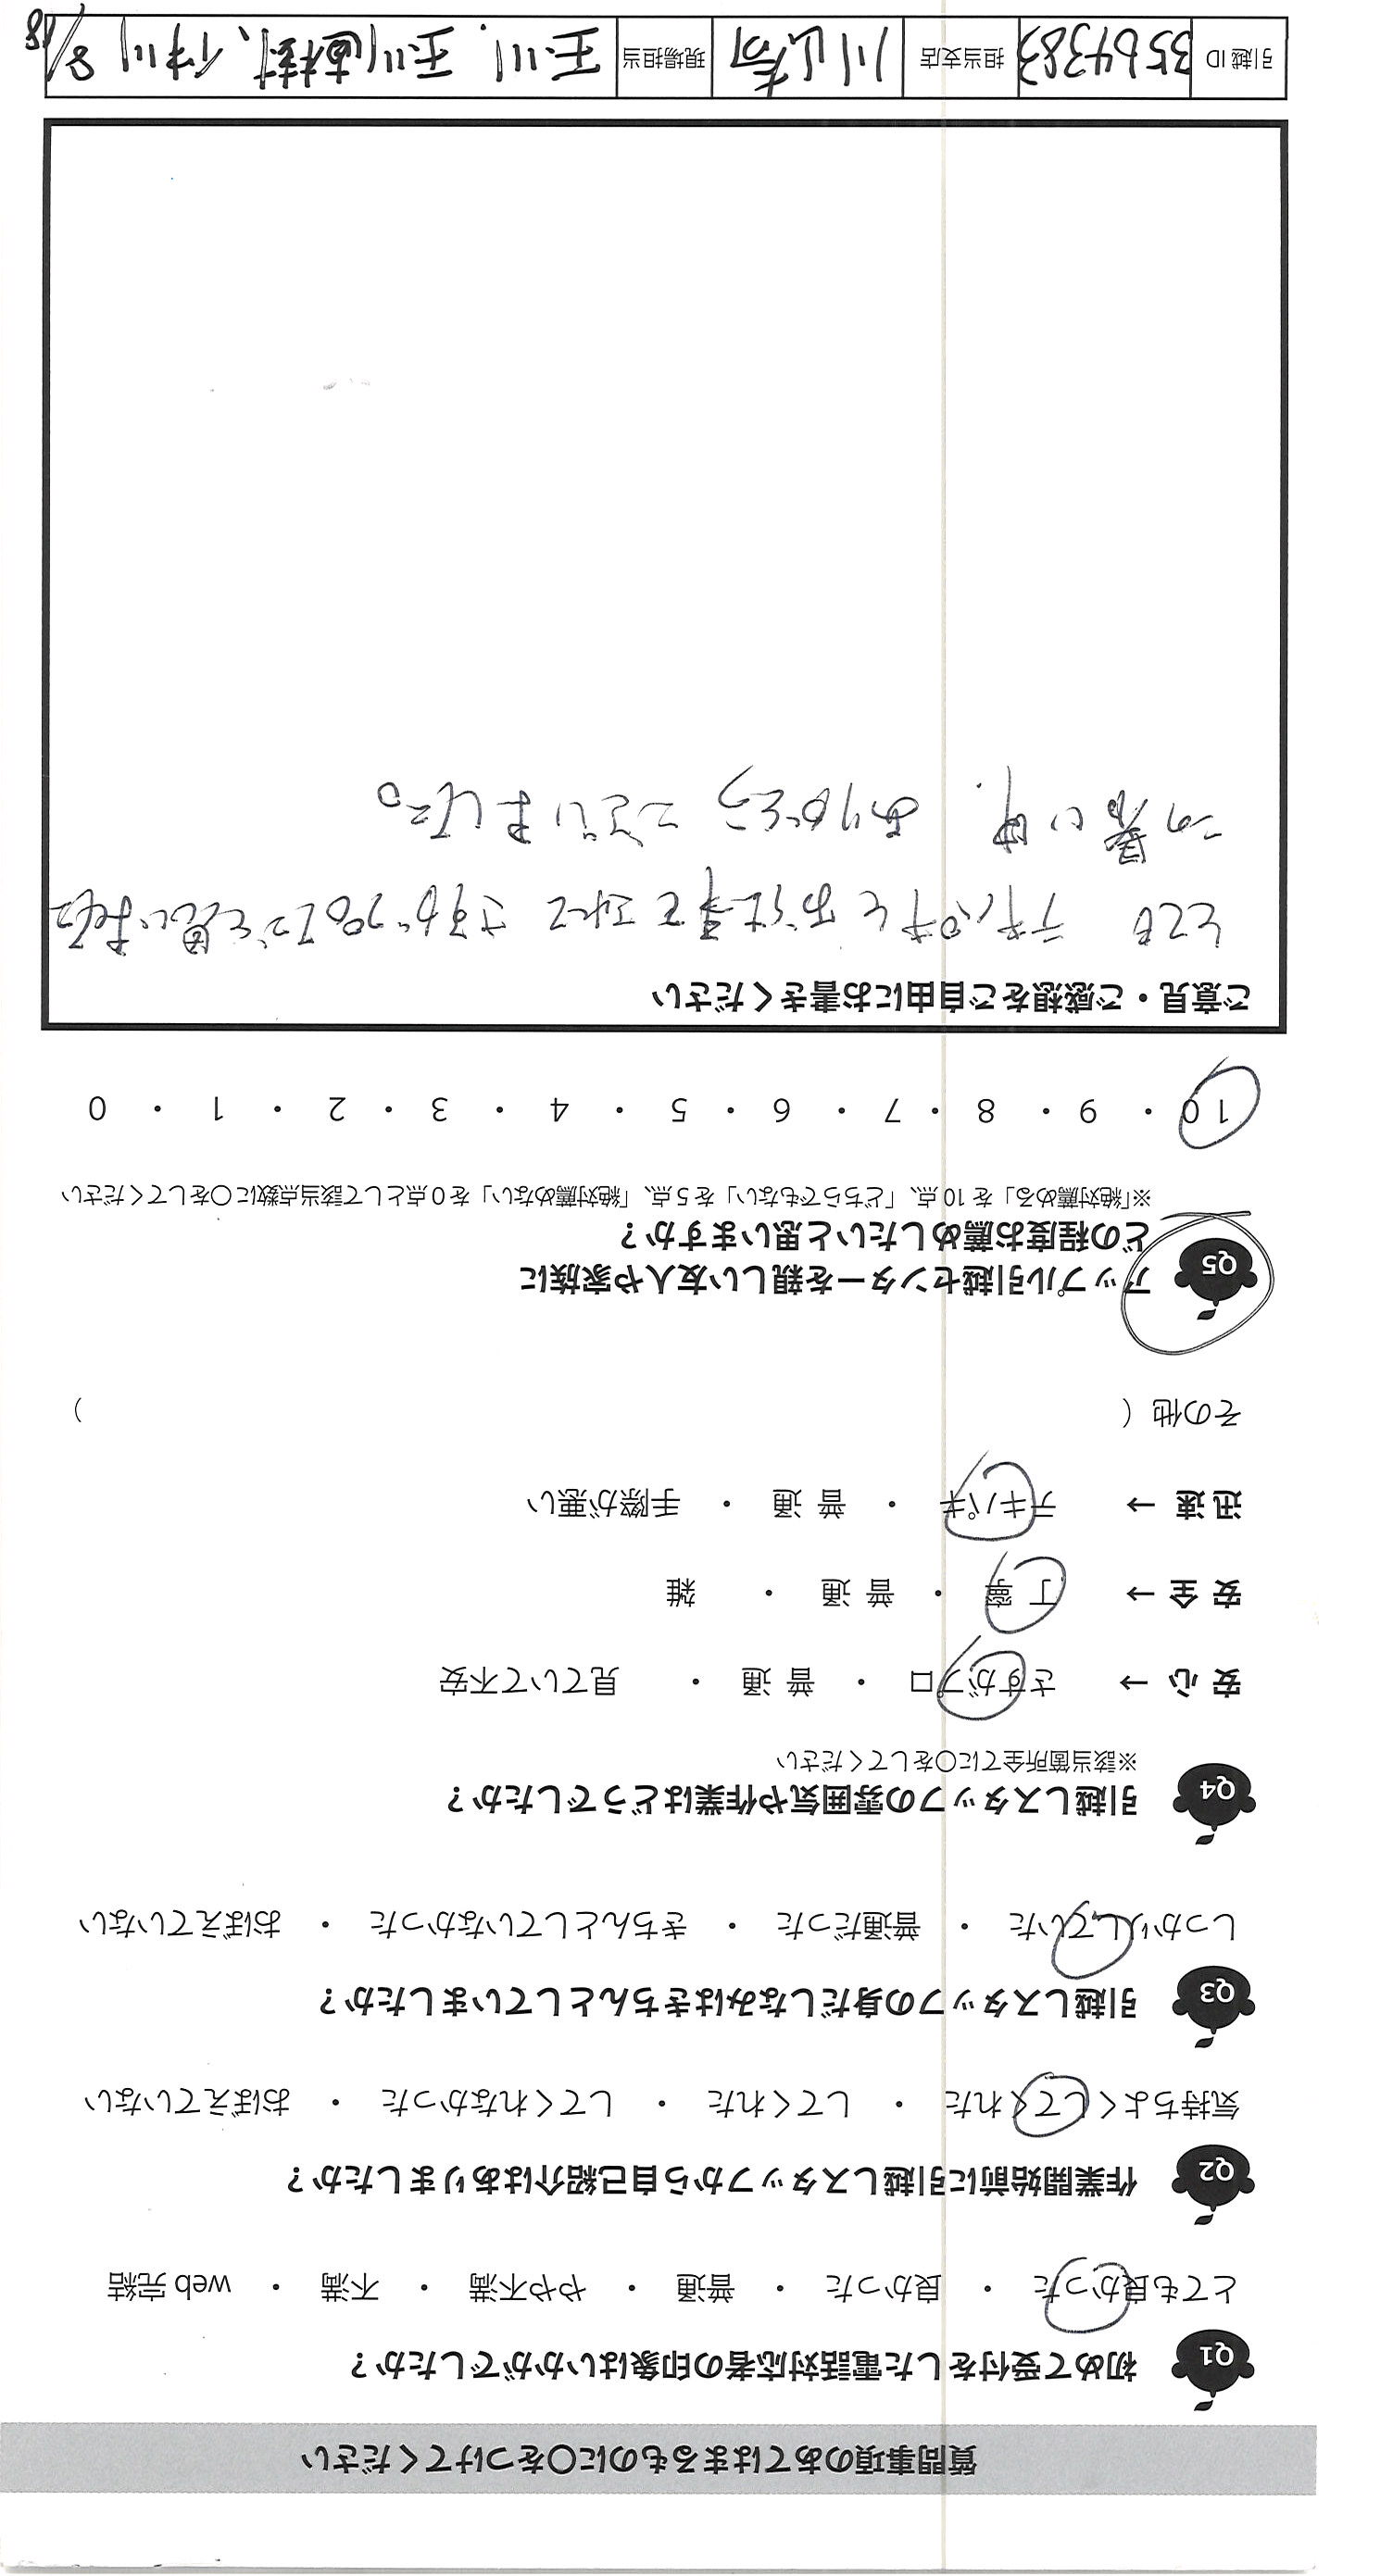 質問事項のあてはまるものに〇をつけてください
Q1 初めて受付をした電話対応者の印象はいかがでしたか？
とても良かった ・ 良かった ・ 普通 ・ やや不満 ・ 不満 ・ web 完結
Q2 作業開始前に引越しスタッフから自己紹介はありましたか？
気持ちよくしてくれた ・ してくれた ・ してくれなかった ・ おぼえていない
Q3 引越しスタッフの身だしなみはきちんとしていましたか？
しっかりしていた ・ 普通だった ・ きちんとしていなかった ・ おぼえていない
Q4 引越しスタッフの雰囲気や作業はどうでしたか？
※該当箇所全てに〇をしてください
安 心 → さすがプロ ・ 普 通 ・ 見ていて不安
安 全 → 丁 寧 ・ 普 通 ・ 雑
迅 速 → テキパキ ・ 普 通 ・ 手際が悪い
その他（ ）
Q5 アップル引越センターを親しい友人や家族に
どの程度お薦めしたいと思いますか？
※「絶対薦める」を 10 点、「どちらでもない」を 5 点、「絶対薦めない」を 0 点として該当点数に〇をしてください
10 ・ 9 ・ 8 ・ 7 ・ 6 ・ 5 ・ 4 ・ 3 ・ 2 ・ 1 ・ 0
ご意見・ご感想をご自由にお書きください
とても テキパキとお仕事をされて さすがプロだと思いました
この暑い中、ありがとう ございました。
引越 ID 3564383 担当支店 川崎 現場担当 玉川、玉川(直樹)、伊川 8/18